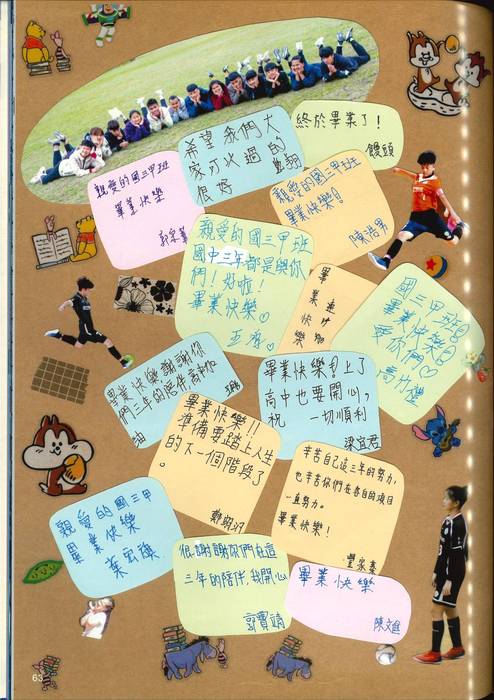 終於畢業了!
饅頭
希望我們大
家可以過的
很好
親愛的國三甲班
畢業快樂
親愛的國三甲班
畢業快樂!
陳洪男
親愛的國三甲班
國中三年都是與你
們!好啦!
畢業快樂♡
畢
業
快
樂
國三甲班
畢業快樂
愛你們♡
畢業快樂,謝謝你
們三年的陪伴,高中加
油
畢業快樂!上了
高中也要開心,
祝 一切順利
梁宜君
畢業快樂!!
準備要踏上人生
的下一個階段了
。
辛苦自己這三年的努力,
也辛苦你們在各自的項目
一直努力。
畢業快樂!
親愛的國三甲
畢業快樂
很謝謝你們在這
三年的陪伴,我開心
畢業快樂
63